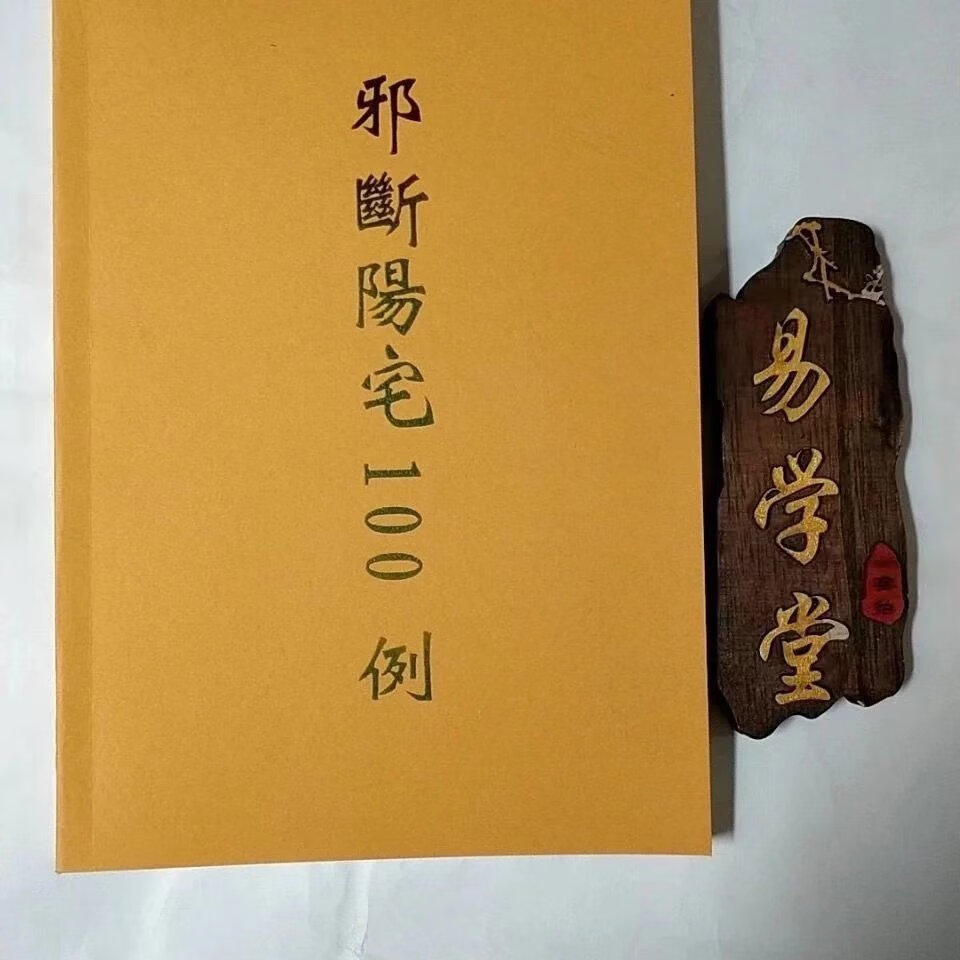 邪斷陽宅100例
易学堂